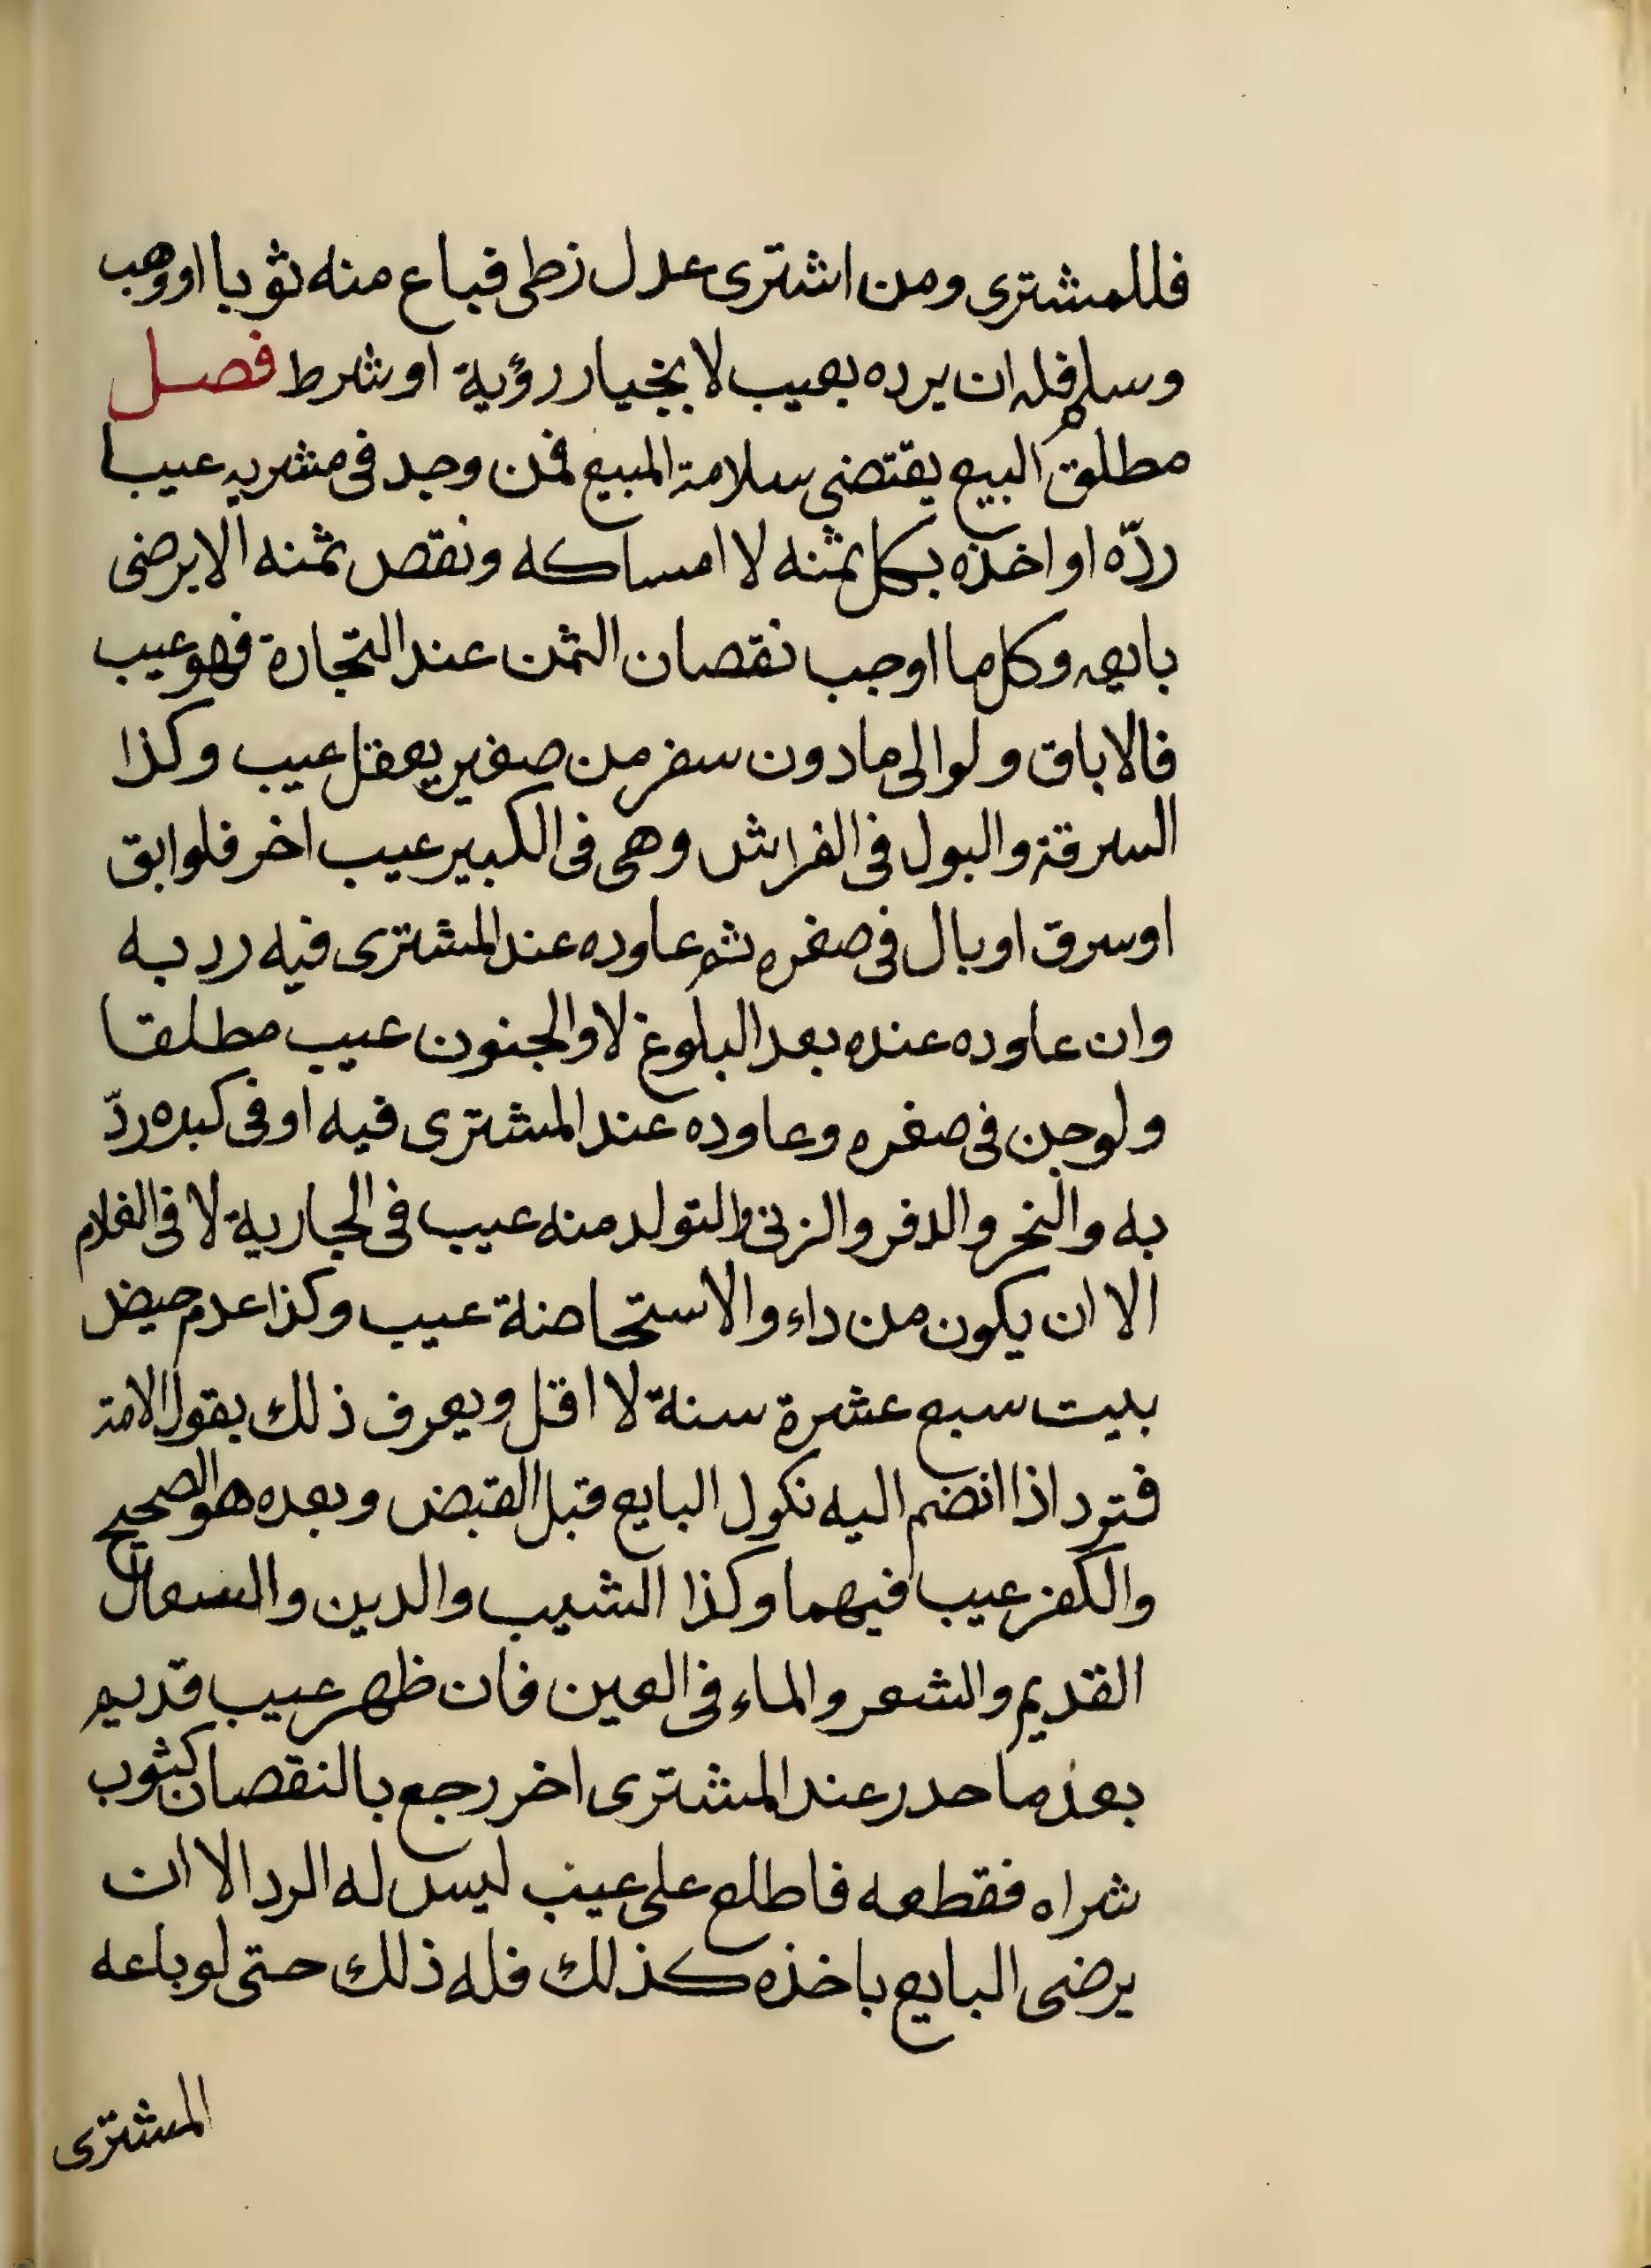 فللمشترى ومن اشترى عدل زطى فباع منه ثوبا او وهب
وسلم فله ان يرده بعيب لا بخيار رؤية او شرط فصل
مطلق البيع يقتضى سلامة المبيع فمن وجد فى مشريه عيبا
ردّه او اخذه بكل ثمنه لا امساكه ونقص ثمنه الا برضى
بايعه وكل ما اوجب نقصان الثمن عند التجارة فهو عيب
فالاباق ولو الى مادون سفر من صغير يعقل عيب وكذا
السرقة والبول فى الفراش وهى فى الكبير عيب اخر فلو ابق
او سرق او بال فى صغره ثم عاوده عند المشترى فيه رد به
وان عاوده عنده بعد البلوغ لا والجنون عيب مطلقا
ولو جن فى صغره وعاوده عند المشترى فيه او فى كبره ردّ
به والبخر والدفر والزنى والتولد منه عيب فى الجارية لا فى الغلام
الا ان يكون من داء والاستحاضة عيب وكذا عدم حيض
بنت سبع عشرة سنة لا اقل ويعرف ذلك بقول الامة
فترد اذا انضم اليه نكول البايع قبل القبض وبعده هو الصحيح
والكفر عيب فيهما وكذا الشيب والدين والسعال
القديم والشعر والماء فى العين فان ظهر عيب قديم
بعد ما حدر عند المشترى اخر رجع بالنقصان كثوب
شراه فقطعه فاطلع على عيب ليس له الرد الا ان
يرضى البايع باخذه كذلك فله ذلك حتى لو باعه
المشترى